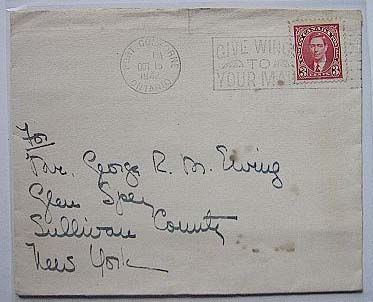 PORT COLBORNE
PM
OCT 15
1942
ONTARIO
GIVE WING
TO
YOUR MA
CANADA
3 3
CENTS
For
Mr. George R. M. Ewing
Glen Spey
Sullivan County
New York